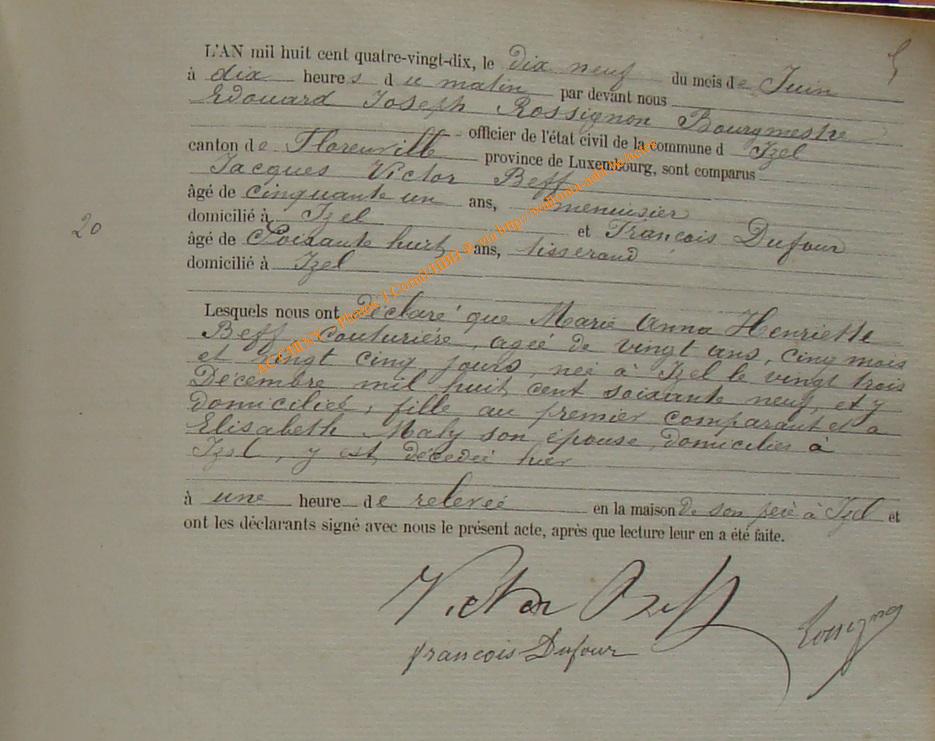 L'AN mil huit cent quatre-vingt-dix, le dix neuf du mois de Juin
à dix heures du matin par devant nous
Edouard Joseph Rossignon Bourgmestre
officier de l'état civil de la commune d Izel
canton de Florenville province de Luxembourg, sont comparus
Jacques Victor Beff
âgé de cinquante un ans, menuisier
domicilié à Izel et François Dufour
20
âgé de Soixante huit ans, tisserand
domicilié à Izel
Lesquels nous ont déclaré que Marie Anna Henriette
Beff couturière, agée de vingt ans, cinq mois
et vingt cinq jours, née à Izel le vingt trois
Décembre mil huit cent soixante neuf, et y
domiciliée, fille au premier comparant et a
Elisabeth Maly son épouse domiciliés à
Izel, y est décédée hier
à une heure de relevée en la maison de son père à Izel et
ont les déclarants signé avec nous le présent acte, après que lecture leur en a été faite.
Victor Beff
françois Dufour
Rossignon